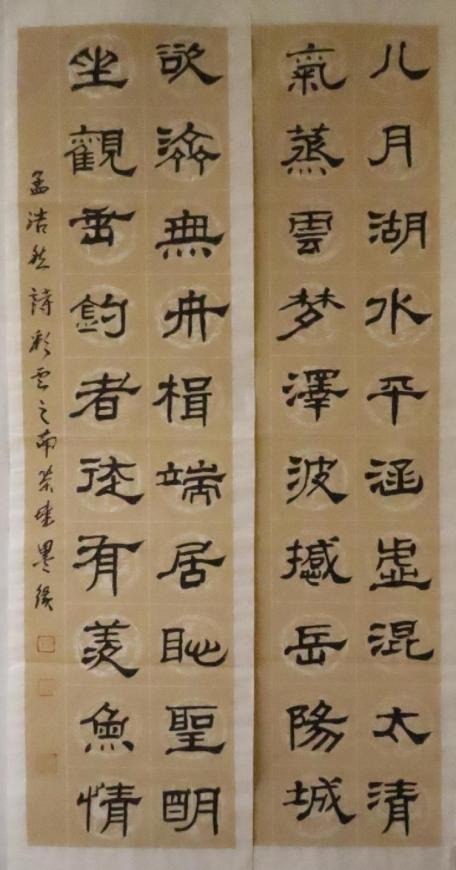 八月湖水平涵虚混太清
氣蒸雲梦澤波撼岳陽城
欲济無舟楫端居恥聖明
坐觀垂釣者徒有羡魚情
孟浩然詩彩云之南墨缘